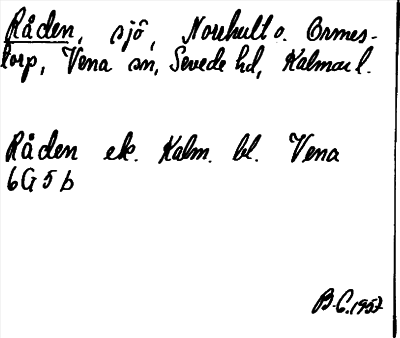 Råden, sjö, Norrhult o. Ormes-
torp, Vena sn, Sevede hd, Kalmar l.
Råden ek. Kalm. bl. Vena
6G5b
B.C. 1957